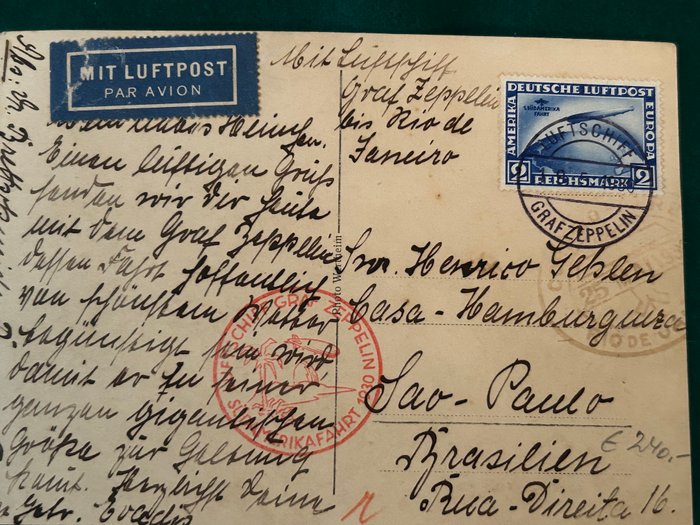 MIT LUFTPOST
PAR AVION
Mein liebes Heinzchen.
Einen luftigen Gruß
senden wir Dir heute
mit dem Graf Zeppelin
dessen Fahrt hoffentlich
von schönstem Wetter
begünstigt sein wird
damit er in seiner
ganzen gigantischen
Größe zur Geltung
kommt. Herzlichst Deine
Mit Luftschiff
Graf Zeppelin
bis Rio de
Janeiro
DEUTSCHE LUFTPOST
1. SÜDAMERIKA
FAHRT
AMERIKA
EUROPA
2 REICHSMARK 2
LUFTSCHIFF
GRAF ZEPPELIN
Photo Wertheim
LUFTSCHIFF GRAF ZEPPELIN
SÜDAMERIKAFAHRT 1930
RIO DE
Snr. Henrico Gehlen
Casa-Hamburgueza
Sao-Paulo
Brasilien
Rua-Direita 16.
€ 240.-